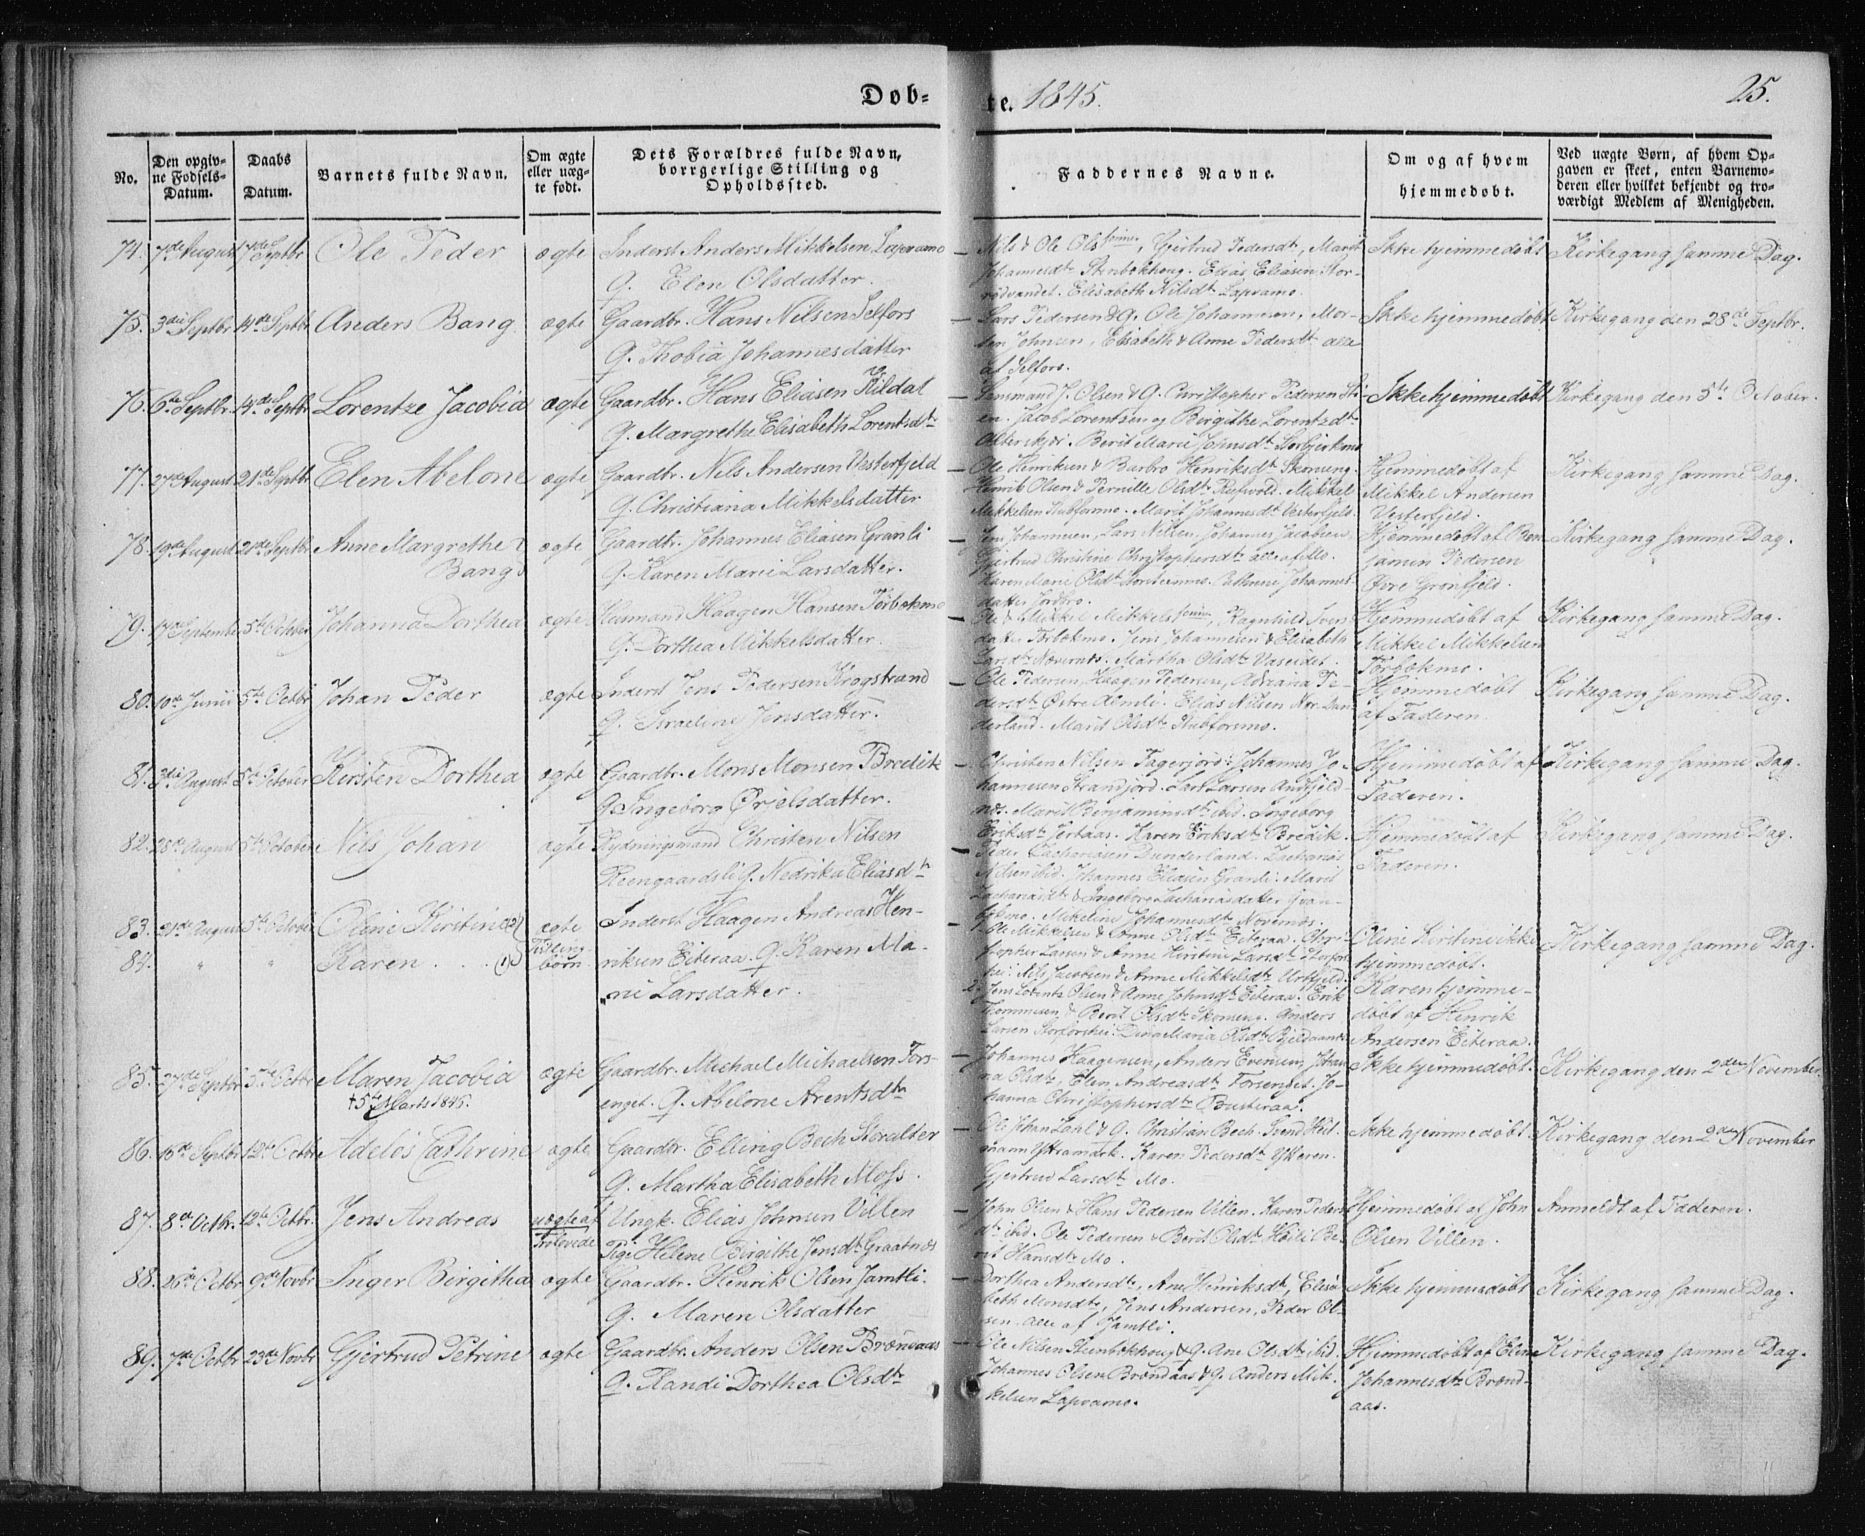 Dob=
te. 1845.
25.
No.
Den opgiv=
ne Fodsels=
Datum.
Daabs
Datum.
Barnets fulde Navn.
Om ægte
eller uæg=
te født.
Dets Forældres fulde Navn,
borrgerlige Stilling og
Opholdssted.
Faddernes Navne.
Om og af hvem
hjemmedøbt.
Ved uægte Børn, af hvem Op=
gaven er skeet, enten Barnemo=
deren eller hvilket bekjendt og tro=
værdigt Medlem af Menigheden.
74. 7de August 7de Septbr Ole Peder ægte Inderst Anders Mikkelsen Lapvamo
G. Elen Olsdatter.
Nils & Ole Olssønner, Gjertrud Pedersdt, Marit
Johannesdt Stenbekhoug. Elias Eliasen Stor-
rødvandet. Elisabeth Nilsdt Lapvamo.
Ikke hjemmedøbt
Kirkegang samme Dag.
75. 3die Septbr 14de Septbr Anders Bang ægte Gaardbr. Hans Nilsen Selfors
G. Thobia Johannesdatter
Lars Pedersen & G. Ole Johannesen, Mor-
ten Johnsen, Elisabeth & Anne Pedersdt alle
af Selfors.
Ikke hjemmedøbt
Kirkegang den 28de Septbr.
76. 6te Septbr 14de Septbr Lorentze Jacobia ægte Gaardbr. Hans Eliasen Kildal
G. Margrethe Elisabeth Lorentsdt
Lensmand J. Olsen & G. Christopher Pedersen
Jacob Lorentsen og Birgithe Lorentzdt
Berit Marie Johnsdt
Ikke hjemmedøbt
Kirkegang den 5te October.
77. 27de August 21de Septbr Elen Abelone ægte Gaardbr. Nils Andersen Vesterfjeld
G. Christiana Mikkelsdatter
Ole Henriksen & Barbro Henriksdt Skonseng.
Henrik Olsen & Pernille Olsdt Mikkel
Mikkelsen Stubformo. Marit Johannesdt Vesterfjeld.
Hjemmedøbt af
Mikkel Andersen
Vesterfjeld.
Kirkegang samme Dag.
78. 19de August 21de Septbr Anne Margrethe
Bang. ægte Gaardbr. Johannes Eliasen Granli
G. Karen Marie Larsdatter.
Jens Johannesen, Lars Nilsen, Johannes Jacobsen,
Gjertrud Christine Christophersdt alle af Mo.
Karen Marie Olsdt Cathrine Johannes-
datter
Hjemmedøbt af Ben-
jamin Pedersen
Øvre Grønfjeld.
Kirkegang samme Dag.
79. 17de September 5te October Johanna Dorthea ægte Huusmand Haagen Hansen Forbekmo
G. Dorthea Mikkelsdatter.
Ole & Mikkel Mikkelssønner, Ragnhild Sven-
datter Jens Johannesen & Elisabeth
Larsdt Nævernes. Martha Olsdt
Hjemmedøbt af
Mikkel Mikkelsen
Forbekmo.
Kirkegang samme Dag.
80. 10de Junii 5te Octbr Johan Peder ægte Inderst Jens Pedersen Krogstrand
G. Israeline Jensdatter.
Ole Pedersen, Haagen Pedersen, Adriana Pe-
dersdt Østre Almli. Elias Nilsen Nor. Dun-
derland. Marit Olsdt Stubformo.
Hjemmedøbt
af Faderen.
Kirkegang samme Dag.
81. 3die August 5te October Kirsten Dorthea ægte Gaardbr. Mons Monsen Bredik
G. Ingeborg Ørjelsdatter.
Christen Nilsen Fagerjord. Johannes Jo-
hannesen Strandjord. Lars Larsen Andfjeld-
næs. Marit Benjaminsdt ibid. Ingeborg
Eriksdt Karen Eriksdt Bredik.
Hjemmedøbt af
Faderen.
Kirkegang samme Dag.
82. 25de August 5te October Nils Johan ægte Rydningsmand Christen Nilsen
Reengaardsli G. Nedrika Eliasdt
Peder Zachariasen Dunderland. Zacharias
Nilsen ibid. Johannes Eliasen Granli. Marit
Zachariasdt & Ingeborg Zachariasdatter
Mikeline Johannesdt
Hjemmedøbt af
Faderen.
Kirkegang samme Dag.
83. 21de August 5te October Oline Kirstine (2) ægte
84. " " Karen . . . (1) Tvilling-
børn.
Inderst Haagen Andreas Hen-
riksen Eiteraa. G. Karen Ma-
rie Larsdatter.
1. Ole Mikkelsen & Anne Olsdt Eiteraa. Chri-
stopher Larsen & Anne Kirstine Larsdt Storfors-
hei. Nils Jacobsen & Anne Mikkelsdt Urtfjeld.
2. Jens Lorents Olsen & Anne Johnsdt Eiteraa. Erik
Thommesen & Berit Olsdt Skonseng. Anders
Larsen Storforshei. Dina Maria Olsdt
Oline Kirstine ikke
hjemmedøbt.
Karen hjemme-
døbt af Henrik
Andersen Eiteraa.
Kirkegang samme Dag.
85. 7de Septbr 5te Octbr Maren Jacobia
† 5te Marts 1846.
ægte Gaardbr. Michael Michaelsen Fors-
enget. G. Abelone Arentsdt
Johannes Haagensen, Anders Evensen, Johan-
na Olsdt, Elen Andreasdt Forsenget. Jo-
hanna Christophersdt Busteraa.
Ikke hjemmedøbt.
Kirkegang den 2den November.
86. 16de Septbr 12te Octbr Adeløs Cathrine ægte Gaardbr. Elling Bech Storalter
G. Martha Elisabeth Moss.
Ole Johan Dahl & G. Christian Bech. Svend Heit-
mann Karen Pedersdt Ytteren.
Gjertrud Larsdt Mo.
Ikke hjemmedøbt.
Kirkegang den 2den November
87. 8de Octbr. 12te Octbr. Jens Andreas uægte af
Trolovede
Ungk. Elias Johnsen Villen
Pige Helene Birgithe Jensdt Graatnæs
John Olsen & Hans Pedersen Villen. Karen Peders-
dt ibid. Ole Pedersen & Berit Olsdt Heili. Be-
rit Hansdt Mo.
Hjemmedøbt af John
Olsen Villen.
Anmeldt af Faderen.
88. 26de Octbr 9de Novbr Inger Birgitha ægte Gaardbr. Henrik Olsen Jamtli.
G. Maren Olsdatter
Dorthea Andersdt, Ane Henriksdt, Elisa-
beth Monsdt, Jens Andersen, Peder Ol-
sen. alle af Jamtli.
Ikke hjemmedøbt
Kirkegang samme Dag.
89. 7de Octbr 23de Novbr Gjertrud Petrine ægte Gaardbr. Anders Olsen Brændaas
G. Randi Dorthea Olsdt
Ole Nilsen Stenbekhoug & G. Ane Olsdt ibid.
Johannes Olsen Brændaas & G. Anders Mik-
kelsen Lapvamo.
Hjemmedøbt af Eline
Johannesdt Brænd-
aas.
Kirkegang samme Dag.